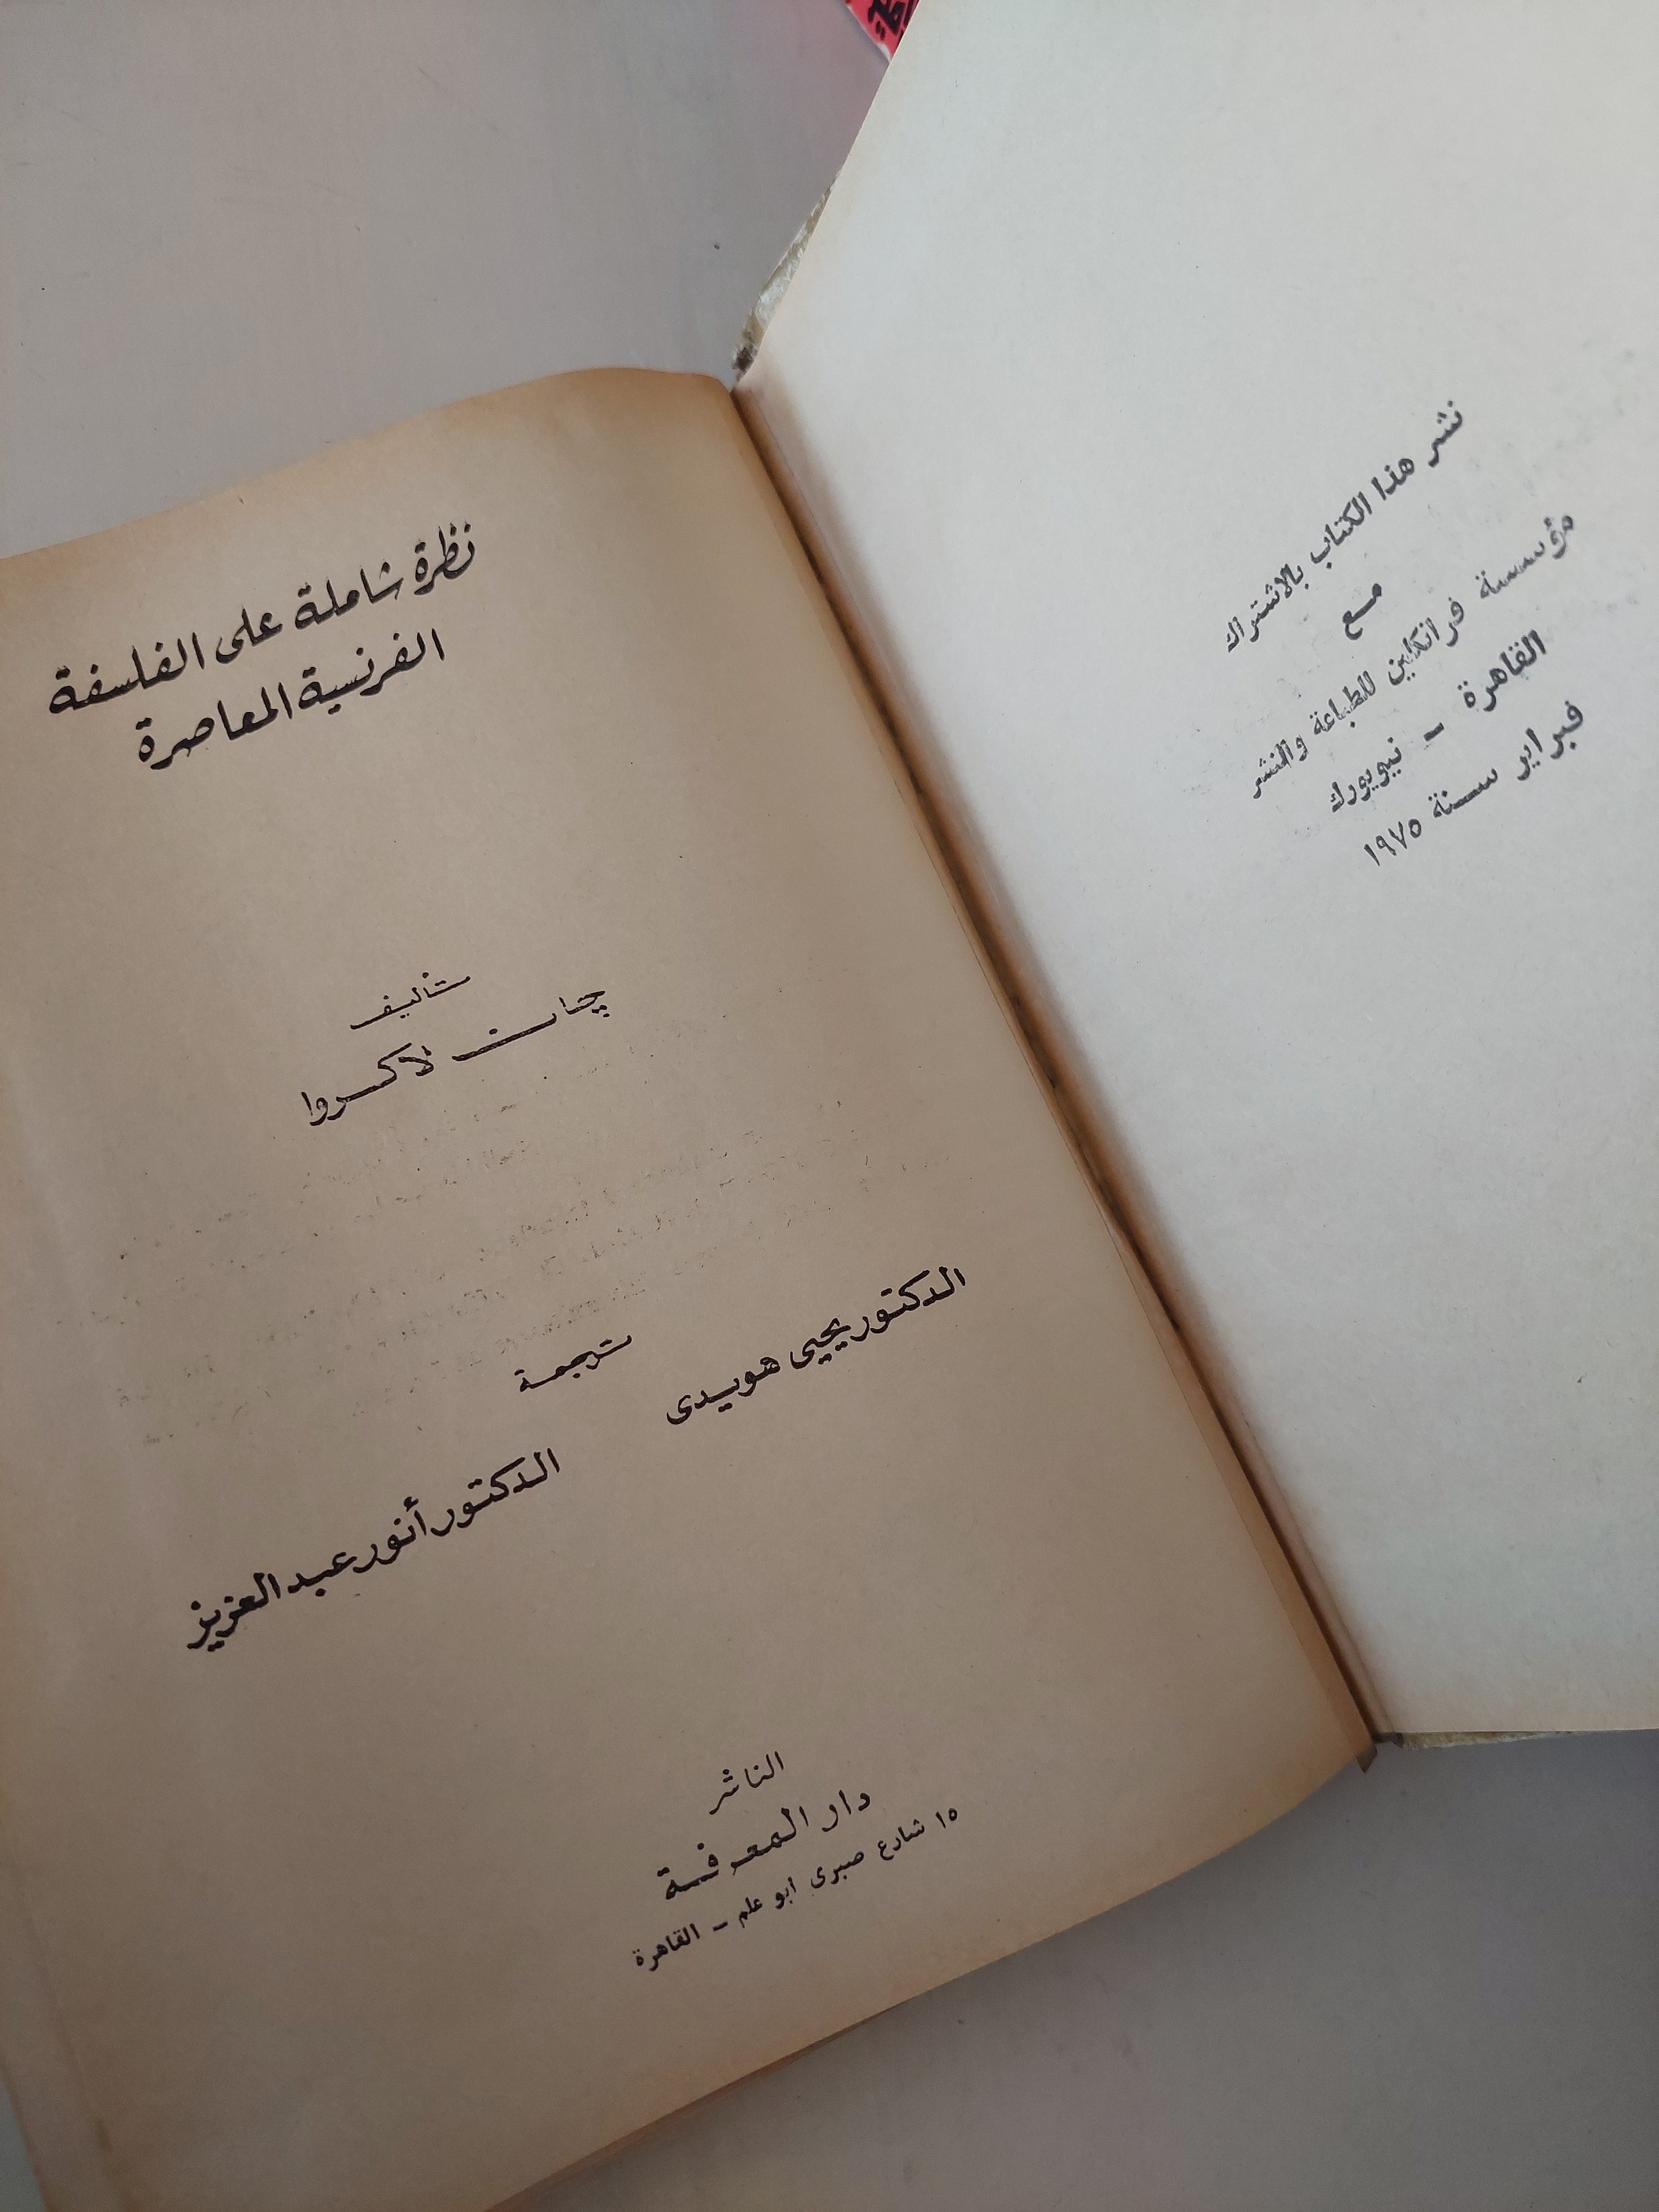 نشر هذا الكتاب بالاشتراك
مع
مؤسسة فرانكلين للطباعة والنشر
القاهرة - نيويورك
فبراير سنة ١٩٧٥
نظرة شاملة على الفلسفة
الفرنسية المعاصرة
تأليف
چان لاكروا
ترجمة
الدكتور يحيى هويدى
الدكتور أنور عبد العزيز
الناشر
دار المعرفة
١٥ شارع صبرى ابو علم - القاهرة